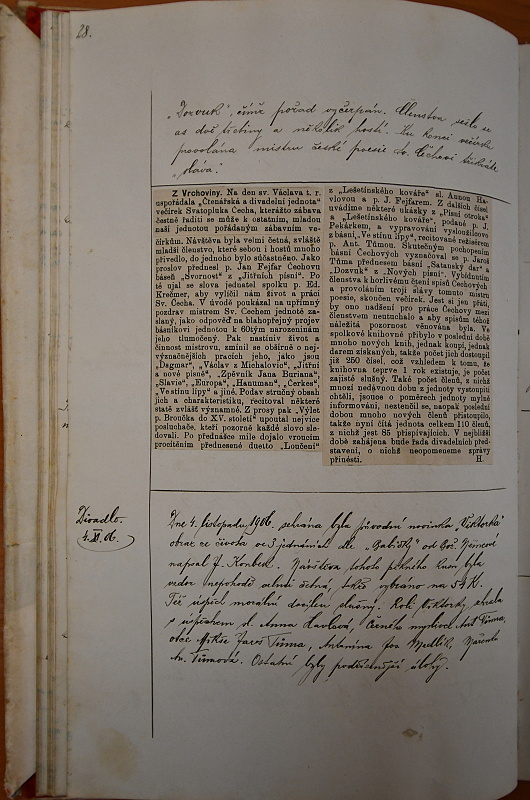 28.
„Dozvuk", čímž pořad vyčerpán. Členstva sešlo se
as dvě třetiny a několik hostí. Ku konci večírku
provolána mistru české poesie Sv. Čechovi trikráte
„sláva".
Z Vrchoviny. Na den sv. Václava t. r.
uspořádala „Čtenářská a divadelní jednota"
večírek Svatopluka Čecha, kterážto zábava
čestně řadíti se může k ostatním, mladou
naší jednotou pořádaným zábavním ve-
čírkům. Návštěva byla velmi četná, zvláště
mladší členstvo, které sebou i hostů mnoho
přivedlo, do jednoho bylo súčastněno. Jako
proslov přednesl p. Jan Fejfar Čechovu
báseň „Svornost" z „Jitřních písní". Po
té ujal se slova jednatel spolku p. Ed.
Krečmer, aby vylíčil nám život a práci
Sv. Čecha. V úvodě poukázal na upřímný
pozdrav mistrem Sv. Čechem jednotě za-
slaný, jako odpověď na blahopřejný projev
básníkovi jednotou k 60tým narozeninám
jeho tlumočený. Pak nastíniv život a
činnost mistrovu, zmínil se obšírně o nej-
význačnějších pracích jeho, jako jsou
„Dagmar", „Václav z Michalovic", „Jitřní
a nové písně", „Zpěvník Jana Buriana",
„Slavie", „Europa", „Hanuman", „Čerkes",
„Ve stínu lípy" a jiné. Podav stručný obsah
jich a charakteristiku, recitoval některé
statě zvlášť významné. Z prosy pak „Výlet
p. Broučka do XV. století" upoutal nejvíce
posluchače, kteří pozorně každé slovo sle-
dovali. Po přednášce mile dojalo vroucím
procítěním přednesené duetto „Loučení"
z „Lešetínského kováře" sl. Annou Ha-
vlovou a p. J. Fejfarem. Z dalších čísel
uvádíme některé ukázky z „Písní otroka"
a „Lešetínského kováře", podané p. J.
Pekárkem, a vypravování vysloužilcovo
z básní „Ve stínu lípy", recitované režisérem
p. Ant. Tůmou. Skutečným pochopením
básní Čechových vyznačoval se p. Jaroš
Tůma přednesem básní „Satanský dar" a
„Dozvuk" z „Nových písní". Vybídnutím
členstva k horlivému čtení spisů Čechových
a provoláním trojí slávy tomuto mistru
poesie, skončen večírek. Jest si jen přáti,
by ono nadšení pro práce Čechovy mezi
členstvem neutuchalo a aby spisům těhož
náležitá pozornost věnována byla. Ve
spolkové knihovně přibylo v poslední době
mnoho nových knih, jednak koupí, jednak
darem získaných, takže počet jich dostoupil
již 250 čísel, což vzhledem k tomu, že
knihovna teprve 1 rok existuje, je počet
zajisté slušný. Také počet členů, z nichž
mnozí nedávnou dobu z jednoty vystoupiti
chtěli, jsouce o poměrech jednoty mylně
informováni, neztenčil se, naopak poslední
dobou mnoho nových členů přistoupilo,
takže nyní čítá jednota celkem 110 členů,
z nichž jest 85 přispívajících. V nejbližší
době zahájena bude řada divadelních před-
stavení, o nichž neopomeneme zprávy
přinésti. H.
Divadlo.
4. XI. 06.
Dne 4. listopadu 1906. sehrána byla původní novinka „Viktorka"
obraz ze života ve 3 jednáních dle „Babičky" od Bož. Němcové
napsal J. Konbek. Návštěva tohoto pěkného kusu byla
vzdor nepohodě velmi četná, takže vybráno na 54 K.
Též úspěch morální docílen slušný. Roli Viktorky sehrála
s úspěchem sl. Anna Havlová, černého myslivce Ant. Tůma,
otce Mikše Jaroš Tůma, Antonína Jos. Medlík, Mařenku
An. Tůmová. Ostatní byly podřízenější úlohy.